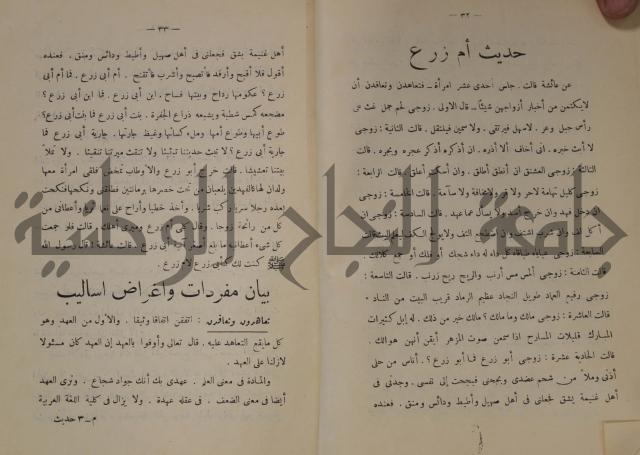 — ٣٢ —
حديث أم زرع
عن عائشة قالت . جلس إحدى عشر امرأة – فتعاهدن وتعاقدن أن
لايكتمن من أخبار أزواجهن شيئاً – قال الاولى . زوجى لحم جمل غث على
رأس جبل وعر . لاسهل فيرتقى . ولا سمين فينتقل . قالت الثانية : زوجى
لا أبث خبره . انى أخاف ألا أذره . ان أذكره أذكر عجره وبجره . قالت
الثالثة : زوجى العشنق ان أنطق أطلق . وان أسكت أعلق . قالت الرابعة :
زوجى كليل تهامة لاحر ولا قر ولامخافة ولا سآمة . قالت الخامسة : زوجى
ان دخل فهد وان خرج أسد ولا يسأل عما عهد . قالت السادسة : زوجى ان
أكل لف وان شرب اشتف وان اضطجع التف ولا يولج الكف ليعلم البث قالت
السابعة : زوجى عياياء طباقاء كل داء له داء شجك أو فلك أو جمع كلا لك .
قالت الثامنة : زوجى المس مس أرنب والريح ريح زرنب . قالت التاسعة :
زوجى رفيع العماد طويل النجاد عظيم الرماد قريب البيت من الناد .
قالت العاشرة : زوجى مالك وما مالك ؟ مالك خير من ذلك . له إبل كثيرات
المبارك قليلات المسارح اذا سمعن صوت المزهر أيقن أنهن هوالك .
قالت الحادية عشرة : زوجى أبو زرع فما أبو زرع ؟ . أناس من حلى
أذنى وملأ من شحم عضدى وبجحنى فبجحت إلى نفسى . وجدنى فى
أهل غنيمة بشق فجعلنى فى أهل صهيل وأطيط ودائس ومنق . فعنده
— ٣٣ —
أهل غنيمة بشق فجعلنى فى أهل صهيل وأطيط ودائس ومنق . فعنده
أقول فلا أقبح وأرقد فأتصبح وأشرب فأتقنح . أم أبى زرع . فما أم أبى
زرع ؟ عكومها رداح وبيتها فساح . ابن أبى زرع . فما ابن أبى زرع ؟
مضجعه كمسل شطبة ويشبعه ذراع الجفرة . بنت أبى زرع فما بنت أبى زرع ؟
طوع أبيها وطوع أمها وملء كسائها وغيظ جارتها . جارية أبى زرع فما
جارية أبى زرع ؟ لا تبث حديثنا تبثيثا ولا تنقث ميرتنا تنقيثا . ولا تملأ
بيتنا تعشيشا . قالت خرج أبو زرع والأوطاب تمخض فلقى امرأة معها
ولدان لها كالفهدين يلعبان من تحت خصرها برمانتين فطلقنى ونكحها فنكحت
بعده رجلا سريا ركب شريا . وأخذ خطيا وأراح على نعما ثريا وأعطانى من
كل رائحة زوجا . وقال كلى أم زرع وميرى أهلك . قالت فلو جمعت
كل شىء أعطانيه ما بلغ أصغر آنية أبى زرع . قالت عائشة : قال رسول الله
ﷺ كنت لك كأبى زرع لأم زرع .
بيان مفردات وأغراض اساليب
تعاهدون وتعاقدون : اتفقن اتفاقا وثيقا . والأول من العهد وهو
كل مايقع التعاهد عليه . قال تعالى وأوفوا بالعهد إن العهد كان مسئولا
لازلنا على العهد .
والمادة فى معنى العلم . عهدى بك أنك جواد شجاع . وترى العهد
أيضا فى معنى الضعف . فى عقله عهدة . ولا يزال فى كلية اللغة العربية
م – ٣ حديث
جامعة النجاح الوطنية